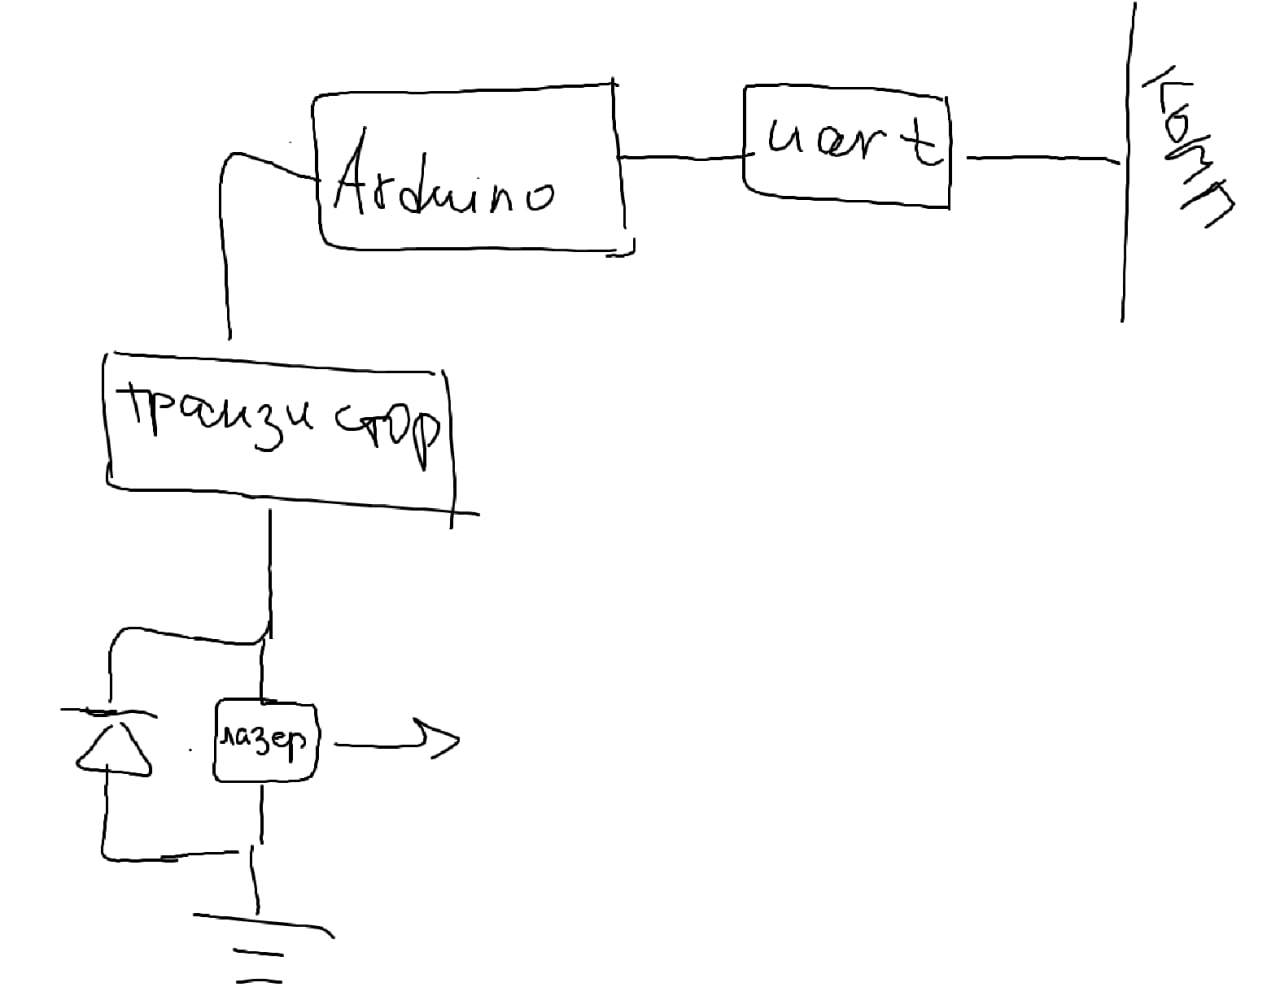 Arduino
uart
комп
транзистор
лазер